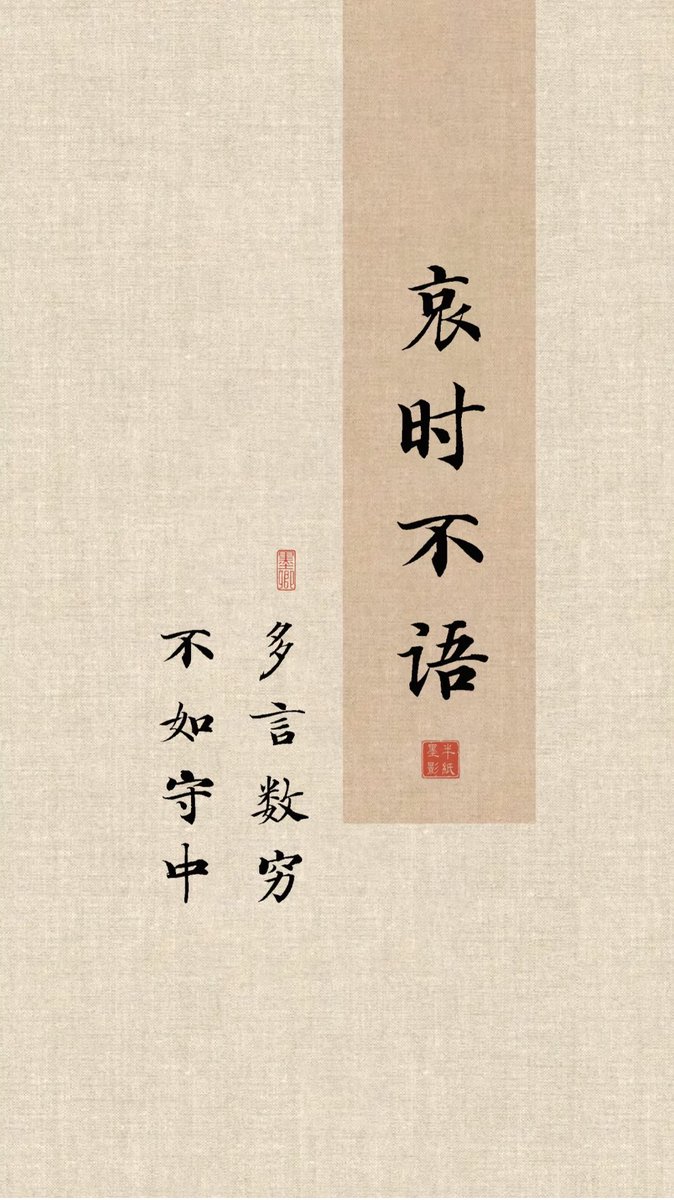 哀时不语
半纸墨影
墨卿
多言数穷
不如守中